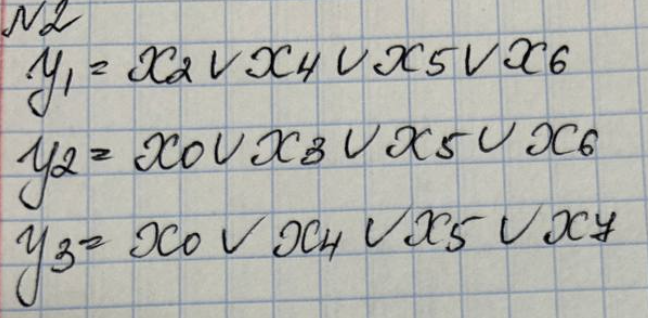 N2
y1 = x2 ∨ x4 ∨ x5 ∨ x6
y2 = x0 ∨ x3 ∨ x5 ∨ x6
y3 = x0 ∨ x4 ∨ x5 ∨ x7